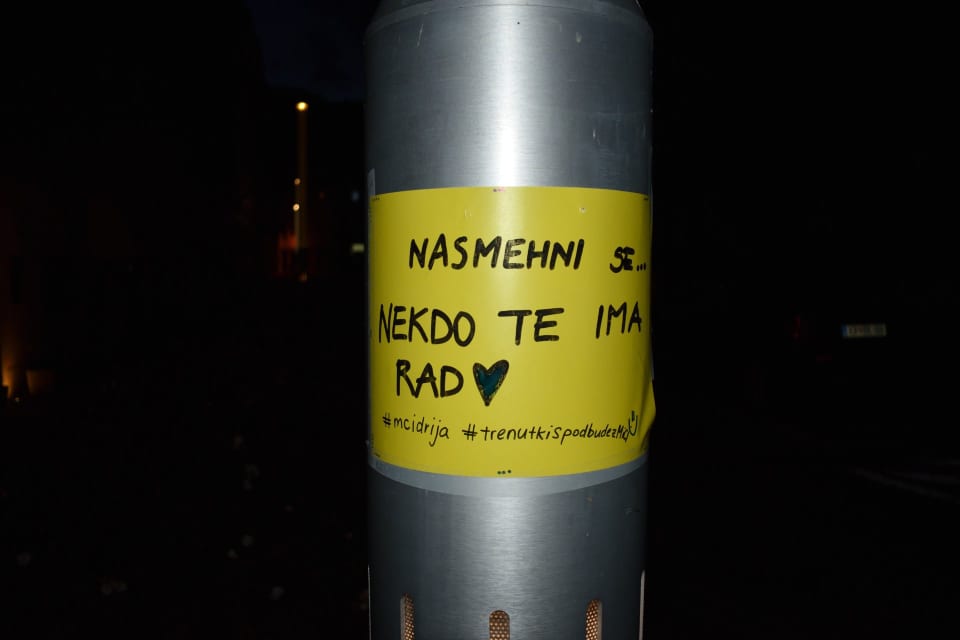 NASMEHNI SE...
NEKDO TE IMA
RAD
#mcidrija #trenutkispodbudezMCI